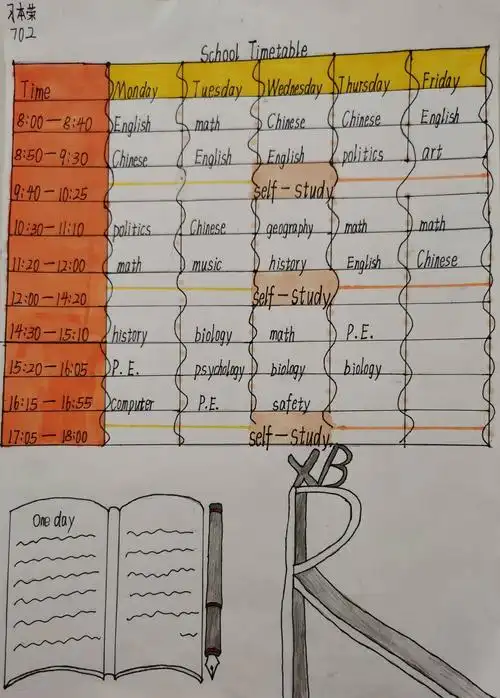 习本荣
702
School Timetable
Time Monday Tuesday Wednesday Thursday Friday
8:00—8:40 English math Chinese Chinese English
8:50—9:30 Chinese English English politics art
9:40—10:25 self-study
10:30—11:10 politics Chinese geography math math
11:20—12:00 math music history English Chinese
12:00—14:20 self-study
14:30—15:10 history biology math P.E.
15:20—16:05 P.E. psychology biology biology
16:15—16:55 computer P.E. safety
17:05—18:00 self-study
One day
XB
R